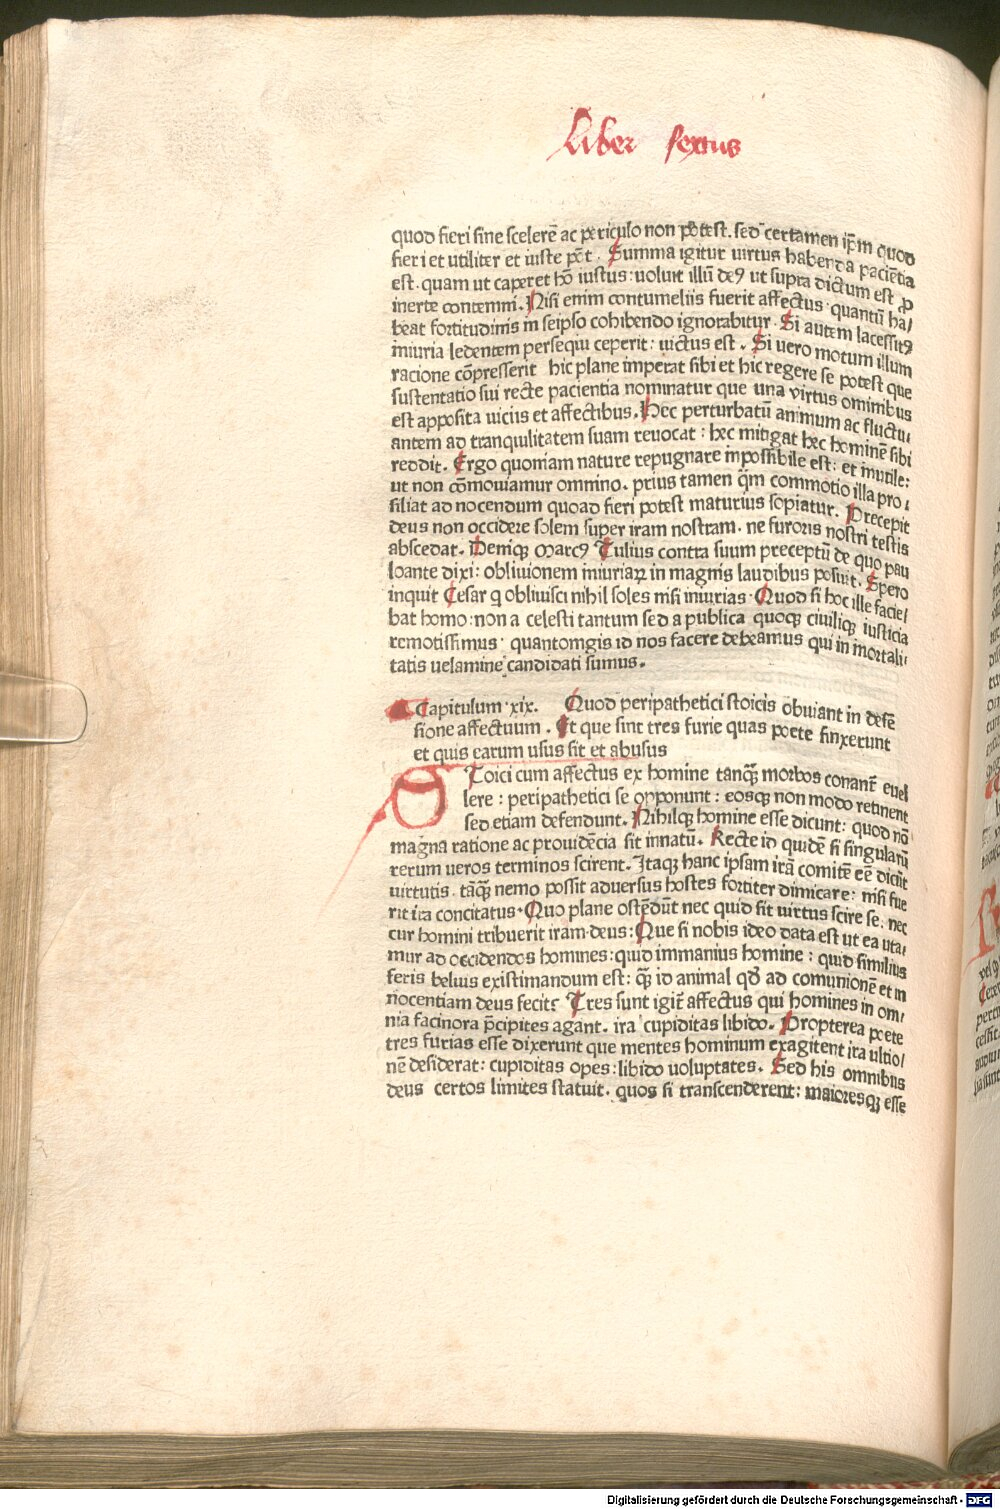 Liber sextus
quod fieri sine scelerē ac periculo non põtest. sed certamen ip̄m quod
fieri et utiliter et iuste pōt. Summa igitur uirtus habenda paciētia
est. quam ut caperet hō iustus: uoluit illū deꝰ ut supra dictum est ꝓ
inerte contemni. Nisi enim contumeliis fuerit affectus: quantū ha/
beat fortitudinis in seipso cohibendo ignorabitur. Si autem lacessitꝰ
iniuria ledentem persequi ceperit: uictus est. Si uero motum illum
racione cōpresserit hic plane imperat sibi et hic regere se potest que
sustentatio sui recte pacientia nominatur que una virtus omnibus
est apposita uiciis et affectibus. Hec perturbatū animum ac fluctu/
antem ad tranquilitatem suam reuocat: hec mitigat hec hominē sibi
reddit. Ergo quoniam nature repugnare inpossibile est: et inutile:
ut non cōmoviamur omnino. prius tamen q̄m commotio illa pro/
siliat ad nocendum quoad fieri potest maturius sopiatur. Precepit
deus non occidere solem super iram nostram. ne furoris nostri testis
abscedat. Deniqꝫ Marcꝰ Tulius contra suum preceptū de quo pau
loante dixi: obliuionem iniuriaꝝ in magnis laudibus posuit. Spero
inquit Cesar q obliuisci nihil soles nisi iniurias. Quod si hoc ille facie/
bat homo: non a celesti tantum sed a publica quoqꝫ ciuiliqꝫ iusticia
remotissimus: quantomgis id nos facere debeamus qui in mortali/
tatis uelamine candidati sumus.
Capitulum xix. Quod peripathetici stoicis obuiant in defē
sione affectuum. Et que sint tres furie quas poete finxerunt
et quis earum usus sit et abusus
S Toici cum affectus ex homine tanqꝫ morbos conant̄ euel
lere: peripathetici se opponunt: eosqꝫ non modo retinent
sed etiam defendunt. Nihilqꝫ homine esse dicunt: quod nō
magna ratione ac prouidēcia sit innatū. Recte id quidē si singularū
rerum ueros terminos scirent. Itaqꝫ hanc ipsam irā comitē eē dicūt
uirtutis. tāqꝫ nemo possit aduersus hostes fortiter dimicare: nisi fue
rit ira concitatus. Quo plane ostēdūt nec quid sit uirtus scire se: nec
cur homini tribuerit iram deus: Que si nobis ideo data est ut ea uta/
mur ad occidendos homines: quid immanius homine: quid similius
feris beluis existimandum est: qꝫ id animal qd̄ ad comunionē et in
nocentiam deus fecit: Tres sunt igit̄ affectus qui homines in om/
nia facinora p̄cipites agant. ira cupiditas libido. Propterea poete
tres furias esse dixerunt que mentes hominum exagitent ira ultio/
nē desiderat: cupiditas opes: libido uoluptates. Sed his omnibus
deus certos limites statuit. quos si transcenderent: maioresqꝫ esse
Digitalisierung gefördert durch die Deutsche Forschungsgemeinschaft - DFG